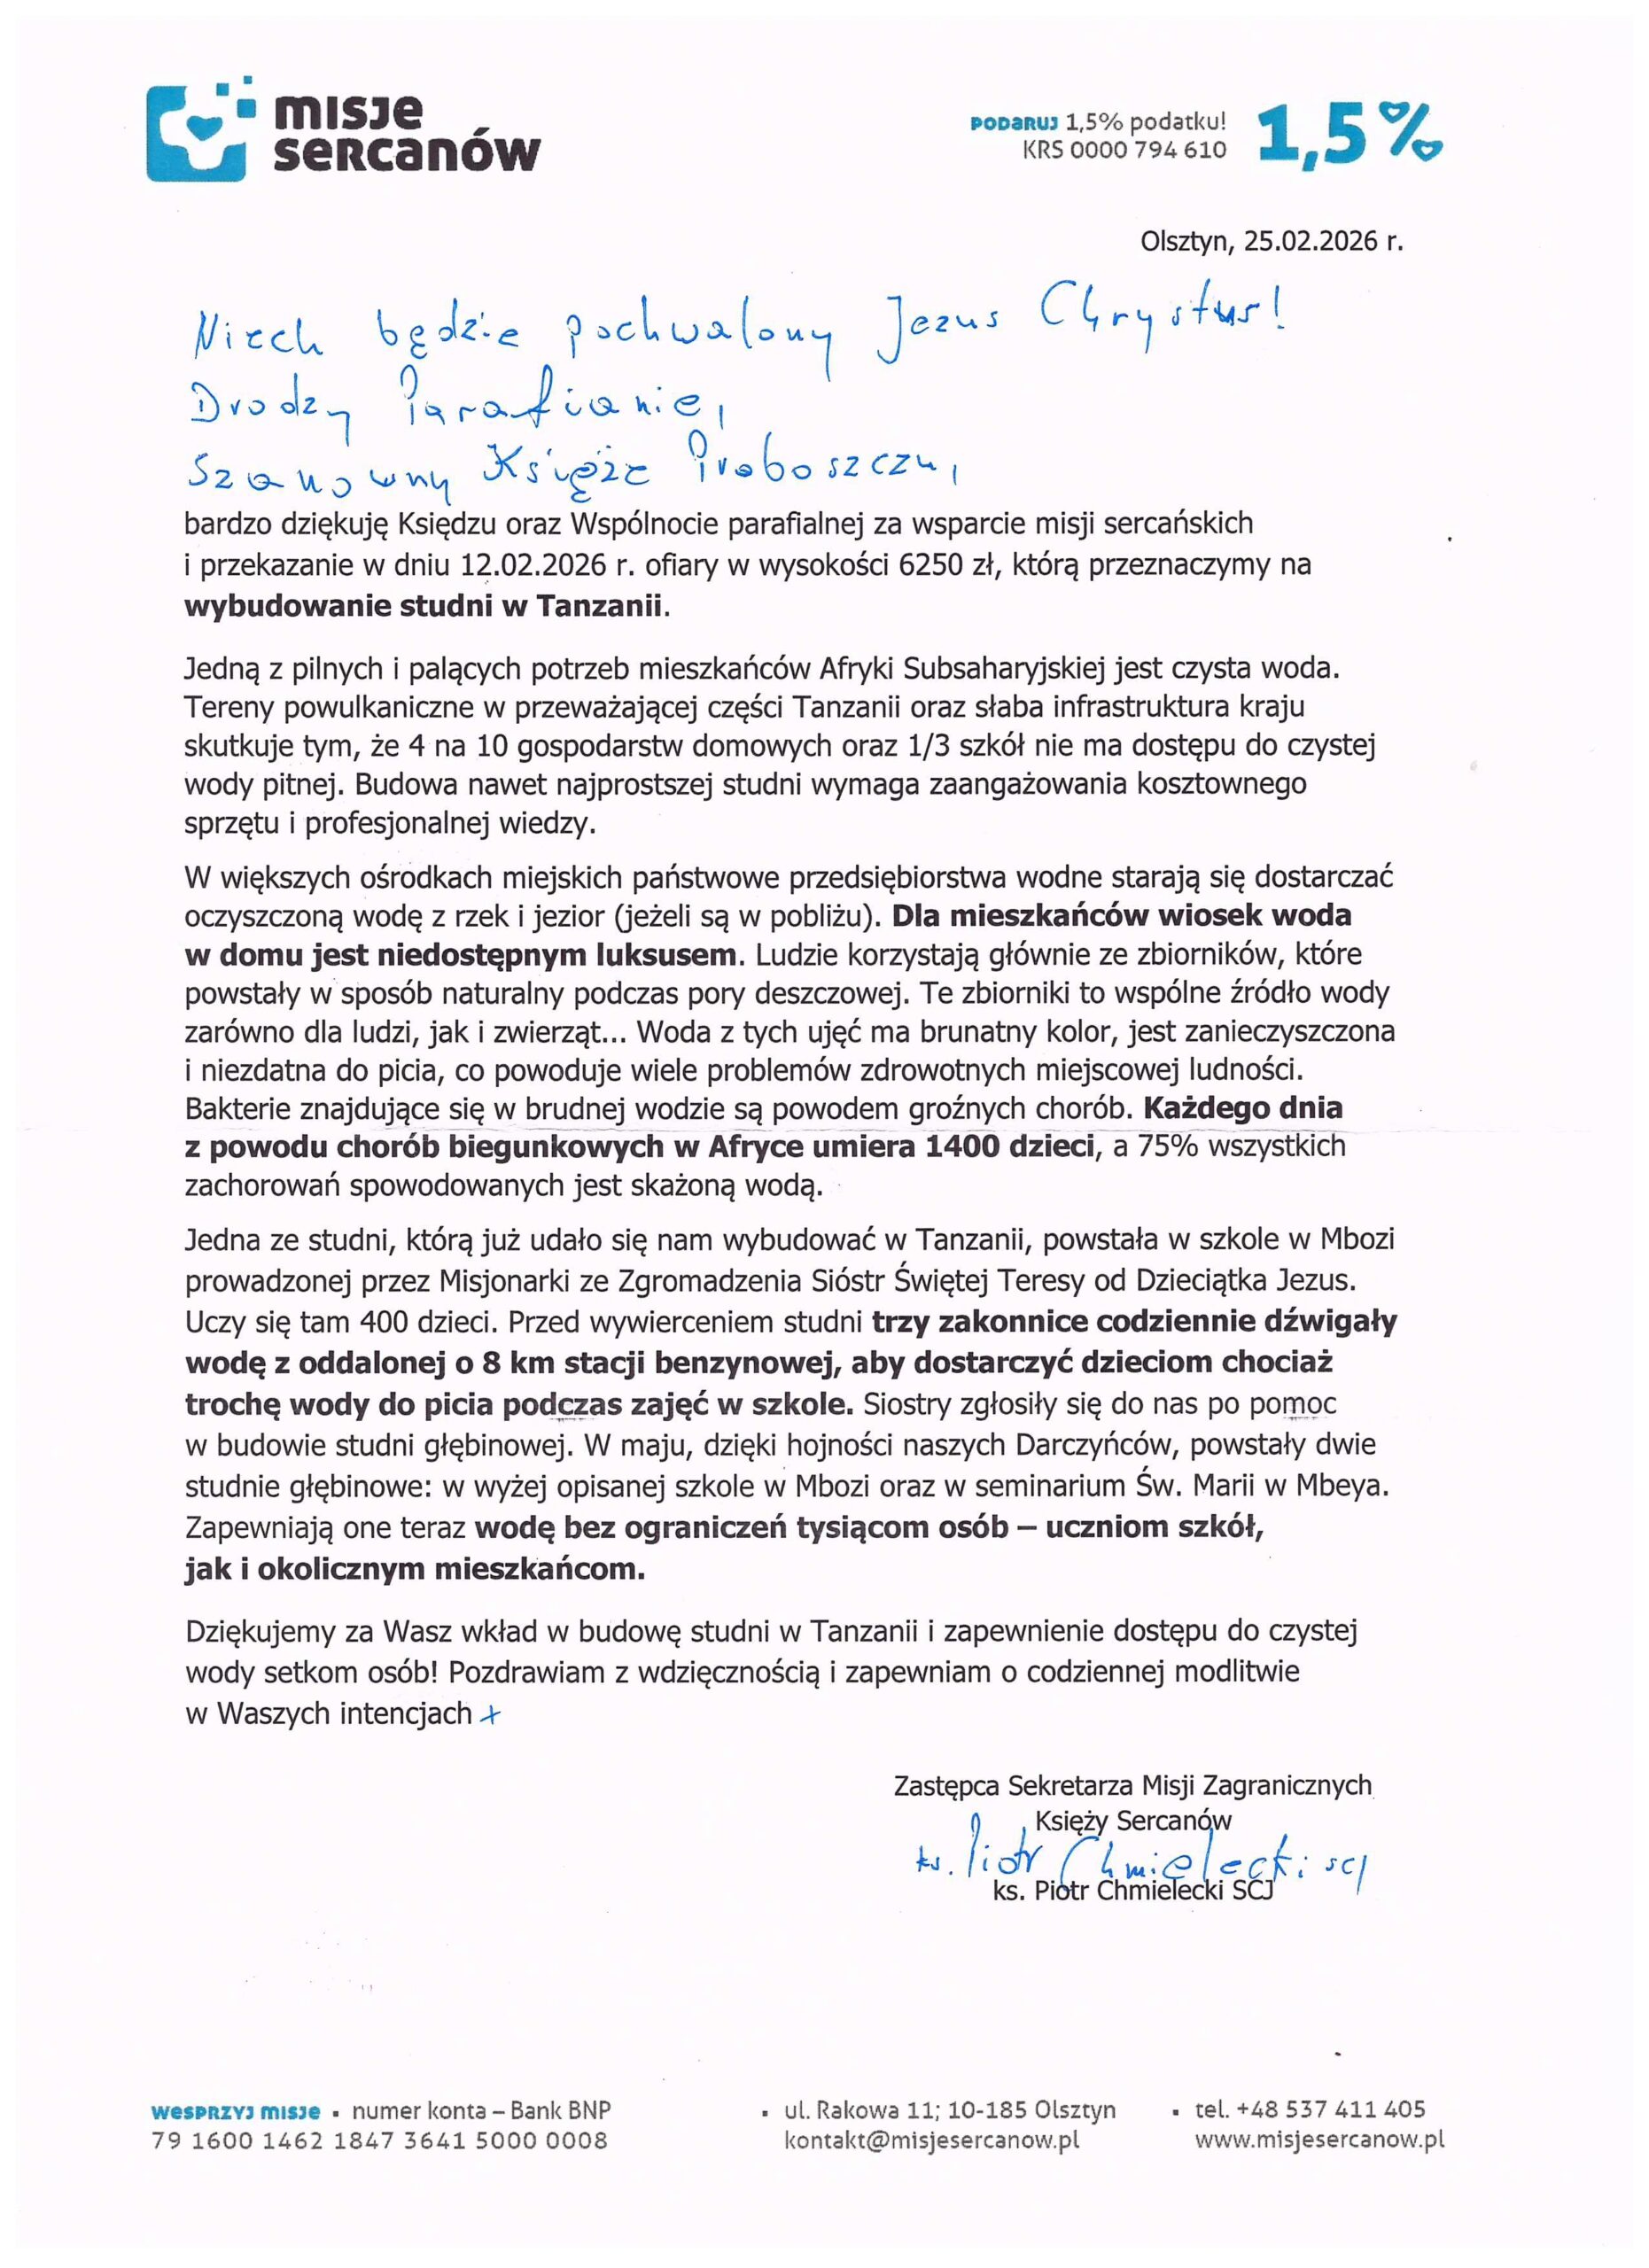 misje
sercanów
PODARUJ 1,5% podatku!
KRS 0000 794 610
1,5%
Olsztyn, 25.02.2026 r.
Niech będzie pochwalony Jezus Chrystus!
Drodzy Parafianie,
Szanowny Księże Proboszczu,
bardzo dziękuję Księdzu oraz Wspólnocie parafialnej za wsparcie misji sercańskich
i przekazanie w dniu 12.02.2026 r. ofiary w wysokości 6250 zł, którą przeznaczymy na
wybudowanie studni w Tanzanii.
Jedną z pilnych i palących potrzeb mieszkańców Afryki Subsaharyjskiej jest czysta woda.
Tereny powulkaniczne w przeważającej części Tanzanii oraz słaba infrastruktura kraju
skutkuje tym, że 4 na 10 gospodarstw domowych oraz 1/3 szkół nie ma dostępu do czystej
wody pitnej. Budowa nawet najprostszej studni wymaga zaangażowania kosztownego
sprzętu i profesjonalnej wiedzy.
W większych ośrodkach miejskich państwowe przedsiębiorstwa wodne starają się dostarczać
oczyszczoną wodę z rzek i jezior (jeżeli są w pobliżu). Dla mieszkańców wiosek woda
w domu jest niedostępnym luksusem. Ludzie korzystają głównie ze zbiorników, które
powstały w sposób naturalny podczas pory deszczowej. Te zbiorniki to wspólne źródło wody
zarówno dla ludzi, jak i zwierząt... Woda z tych ujęć ma brunatny kolor, jest zanieczyszczona
i niezdatna do picia, co powoduje wiele problemów zdrowotnych miejscowej ludności.
Bakterie znajdujące się w brudnej wodzie są powodem groźnych chorób. Każdego dnia
z powodu chorób biegunkowych w Afryce umiera 1400 dzieci, a 75% wszystkich
zachorowań spowodowanych jest skażoną wodą.
Jedna ze studni, którą już udało się nam wybudować w Tanzanii, powstała w szkole w Mbozi
prowadzonej przez Misjonarki ze Zgromadzenia Sióstr Świętej Teresy od Dzieciątka Jezus.
Uczy się tam 400 dzieci. Przed wywierceniem studni trzy zakonnice codziennie dźwigały
wodę z oddalonej o 8 km stacji benzynowej, aby dostarczyć dzieciom chociaż
trochę wody do picia podczas zajęć w szkole. Siostry zgłosiły się do nas po pomoc
w budowie studni głębinowej. W maju, dzięki hojności naszych Darczyńców, powstały dwie
studnie głębinowe: w wyżej opisanej szkole w Mbozi oraz w seminarium Św. Marii w Mbeya.
Zapewniają one teraz wodę bez ograniczeń tysiącom osób – uczniom szkół,
jak i okolicznym mieszkańcom.
Dziękujemy za Wasz wkład w budowę studni w Tanzanii i zapewnienie dostępu do czystej
wody setkom osób! Pozdrawiam z wdzięcznością i zapewniam o codziennej modlitwie
w Waszych intencjach +
Zastępca Sekretarza Misji Zagranicznych
Księży Sercanów
ks. Piotr Chmielecki SCJ
ks. Piotr Chmielecki SCJ
WESPRZYJ MISJE ▪ numer konta – Bank BNP
79 1600 1462 1847 3641 5000 0008
▪ ul. Rakowa 11; 10-185 Olsztyn
kontakt@misjesercanow.pl
▪ tel. +48 537 411 405
www.misjesercanow.pl